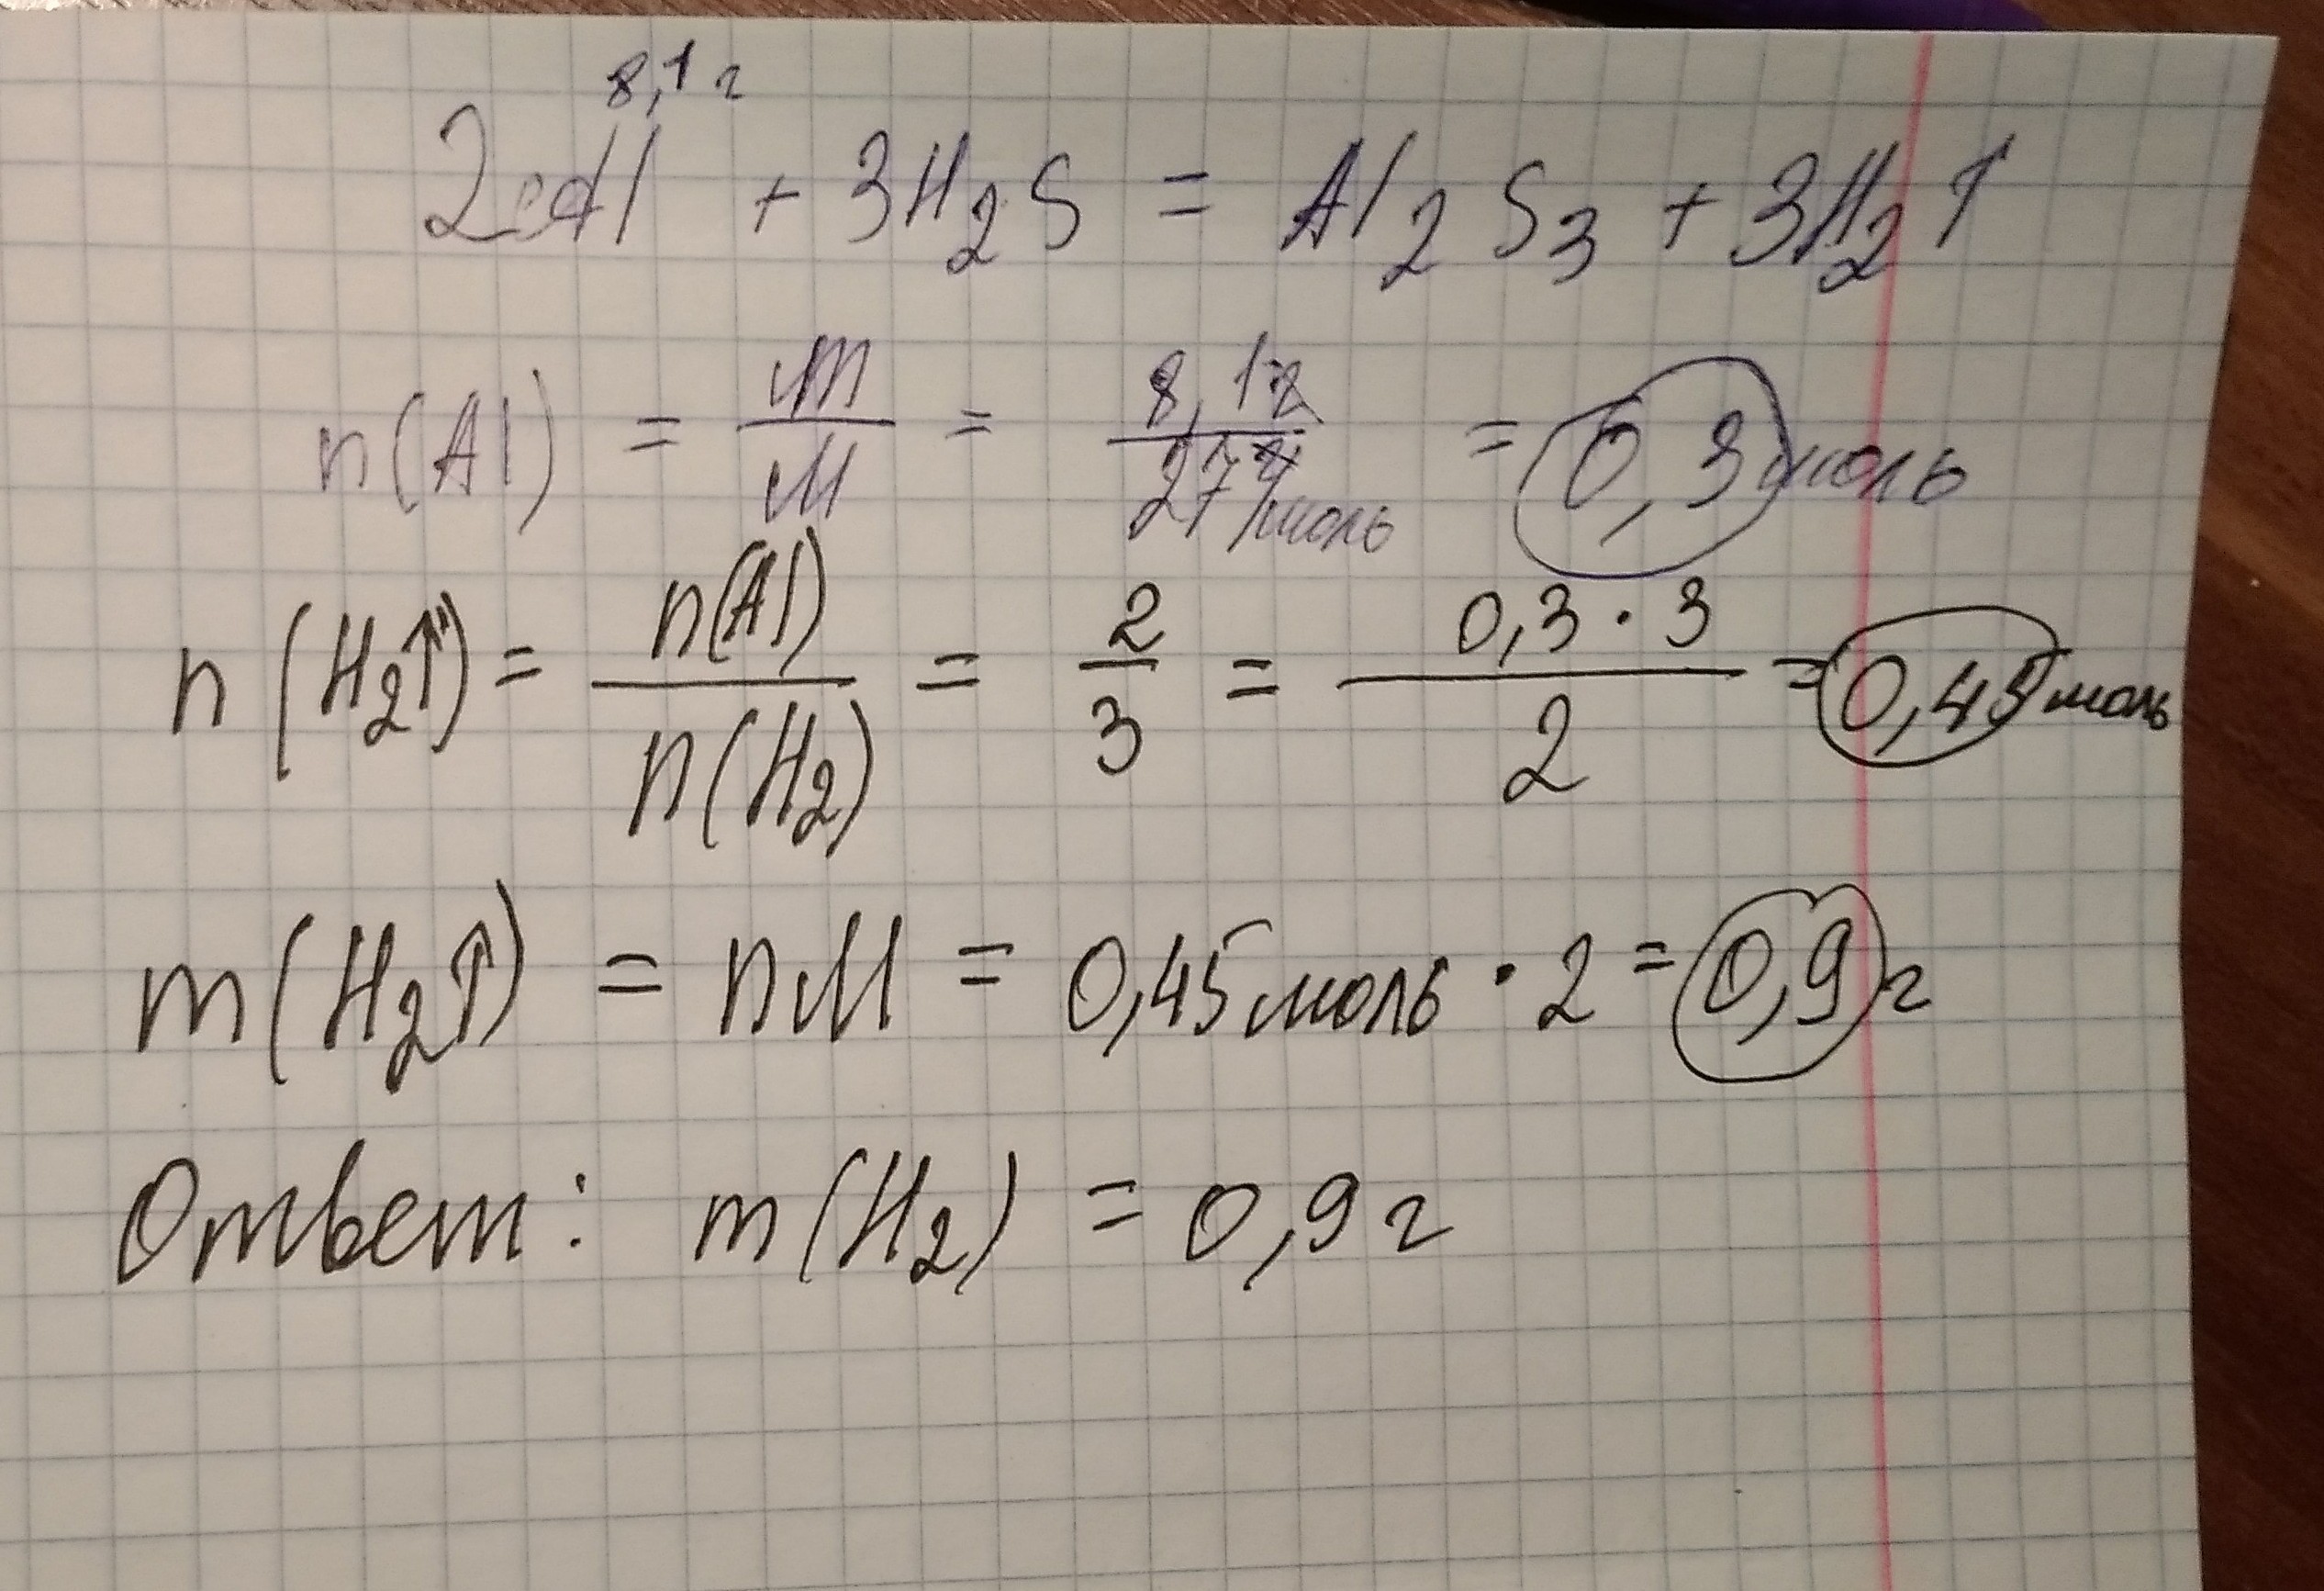 8,1 г
2Al + 3H₂S = Al₂S₃ + 3H₂↑
n(Al) = m/M = 8,1г/27г/моль = 0,3 моль
n(H₂↑) = n(Al)/n(H₂) = 2/3 = 0,3 · 3/2 = 0,45 моль
m(H₂↑) = nM = 0,45 моль · 2 = 0,9 г
Ответ: m(H₂) = 0,9 г